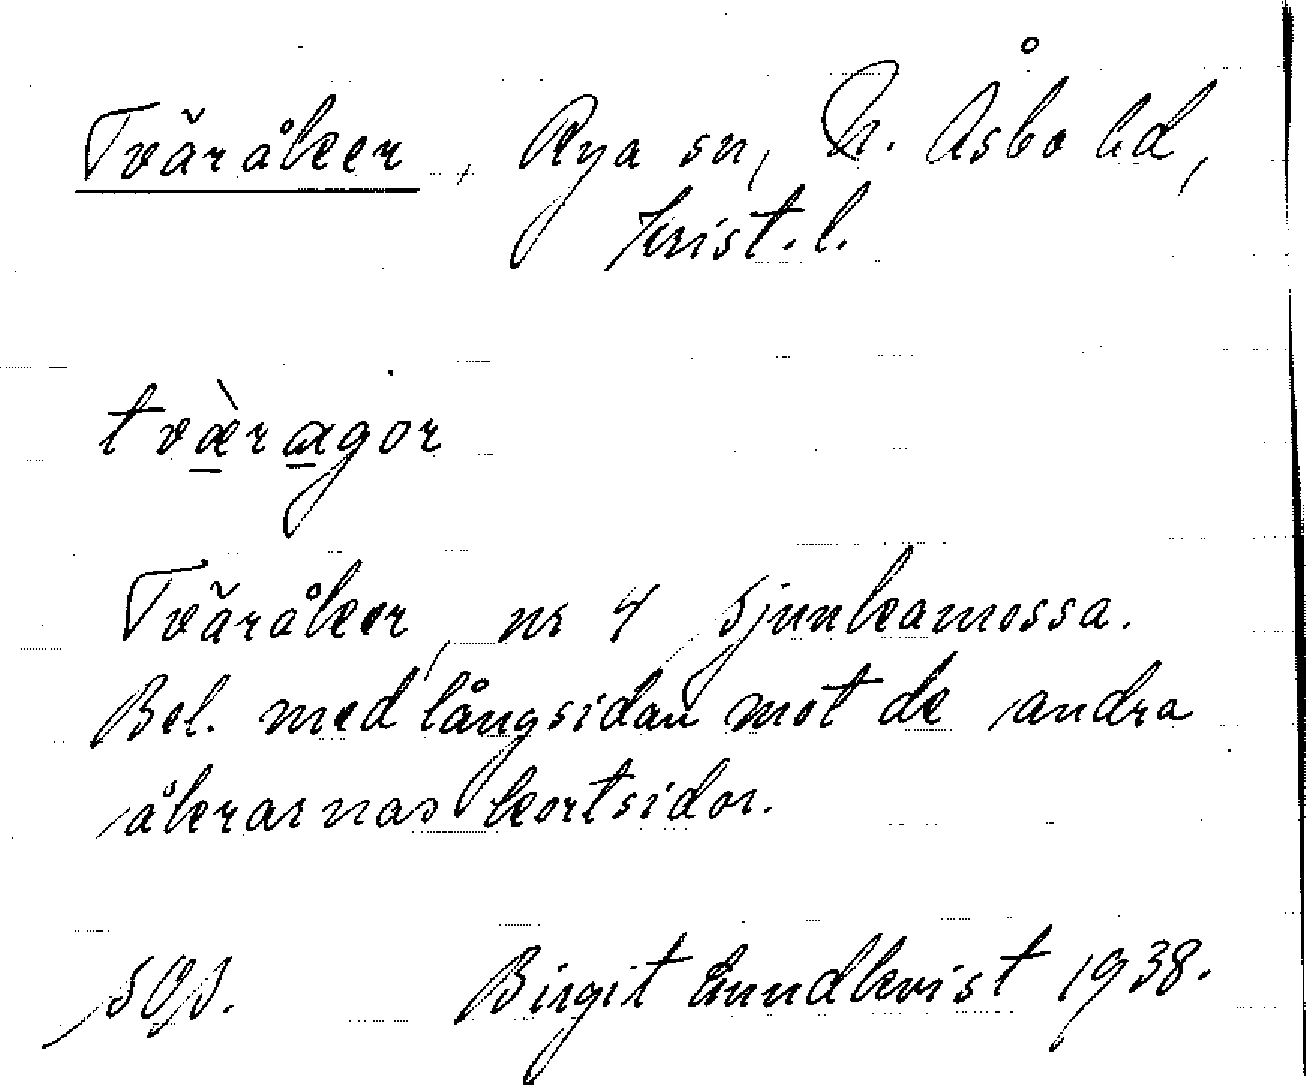 Tväråker, Rya sn, N. Åsbo hd,
Krist. l.
tvæ̀ragor
Tväråker, nr 4 Sjunkamossa.
Bel. med långsidan mot de andra
åkrarnas kortsidor.
Birgit Lundkvist 1938.